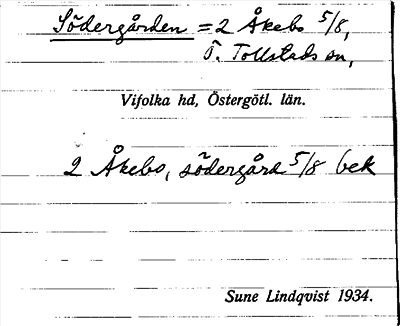 Södergården = 2 Åkebo 5/8,
Ö. Tollstads sn,
Vifolka hd, Östergötl. län.
2 Åkebo, södergård 5/8 bek
Sune Lindqvist 1934.